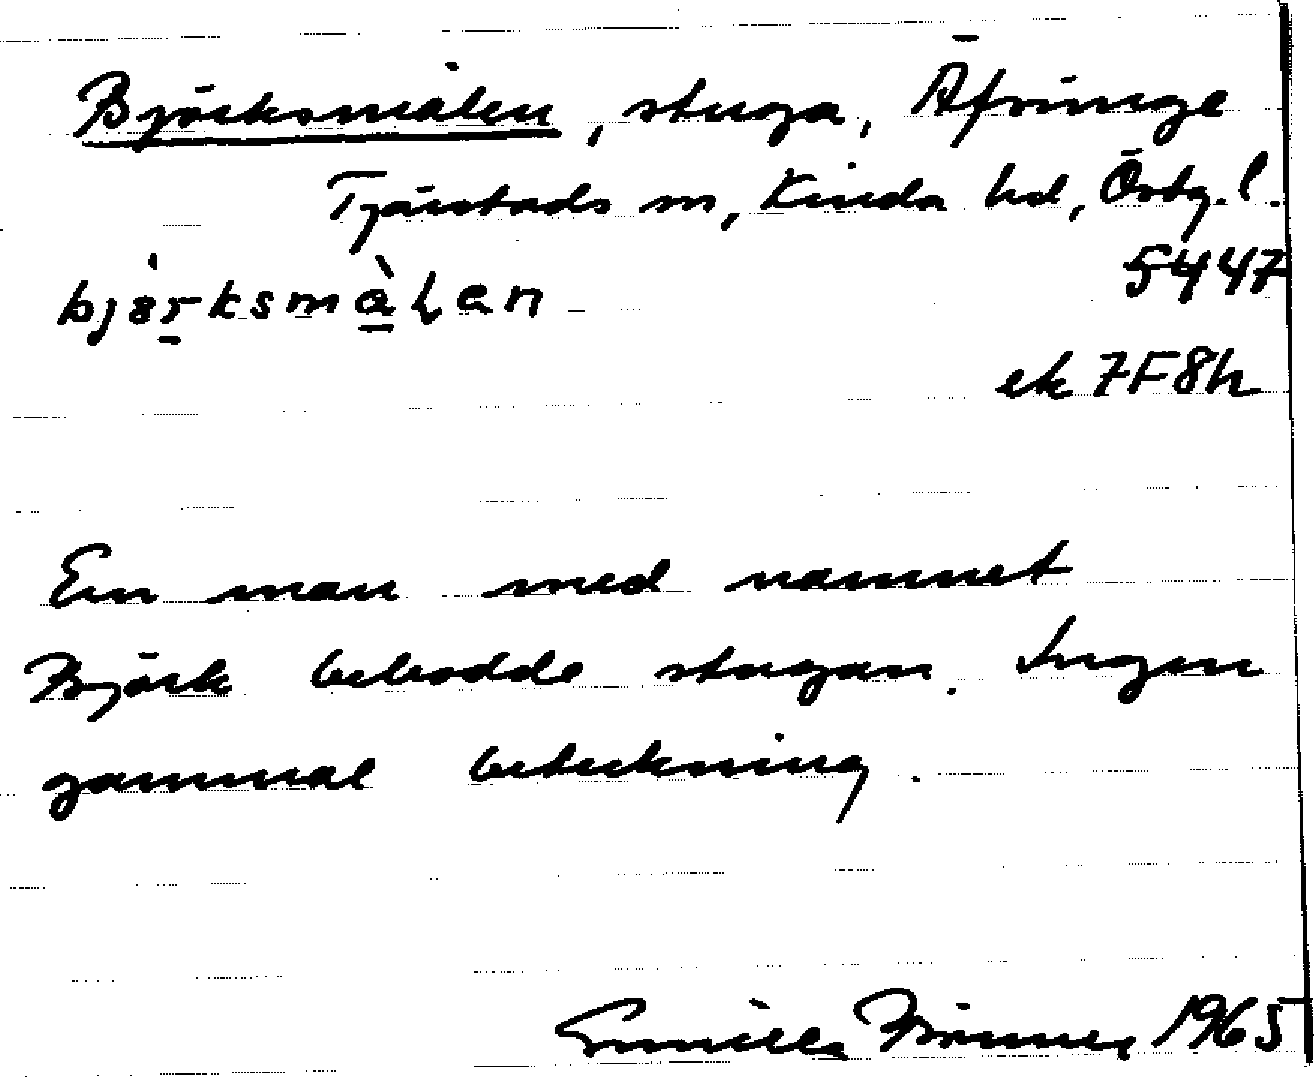 Björksmålen, stuga, Äfvinge
Tjärstads sn, Kinda hd, Östg. l.
björksmålen
5447
ek 7F8h
En man med namnet
Björk bebodde stugan. Ingen
gammal beteckning.
Gunilla 1965